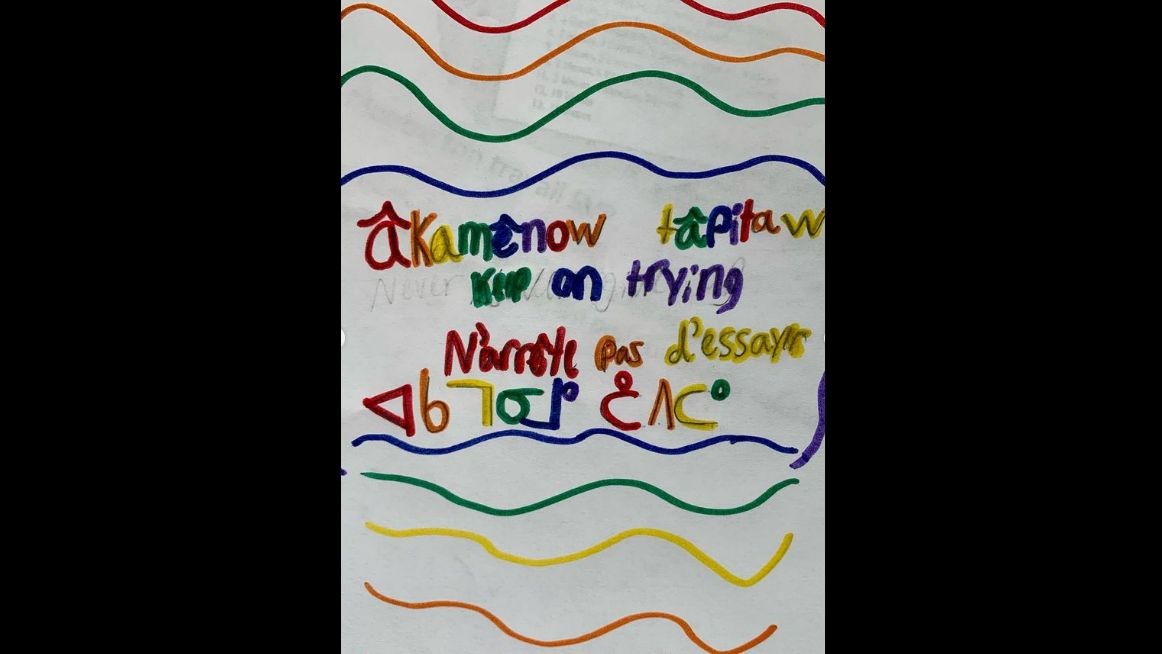 âkamênow tâpitaw
Keep on trying
N'arrête pas d'essayer
ᐊᑲᒣᓂᒧᐤ ᑖᐱᑕᐤ